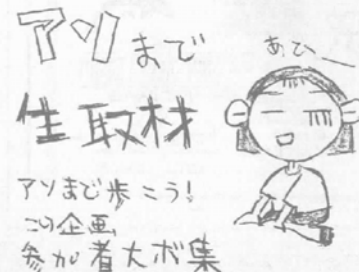 アソまで
生取材
あひ〜
アソまで歩こう!
この企画
参加者大ボ集